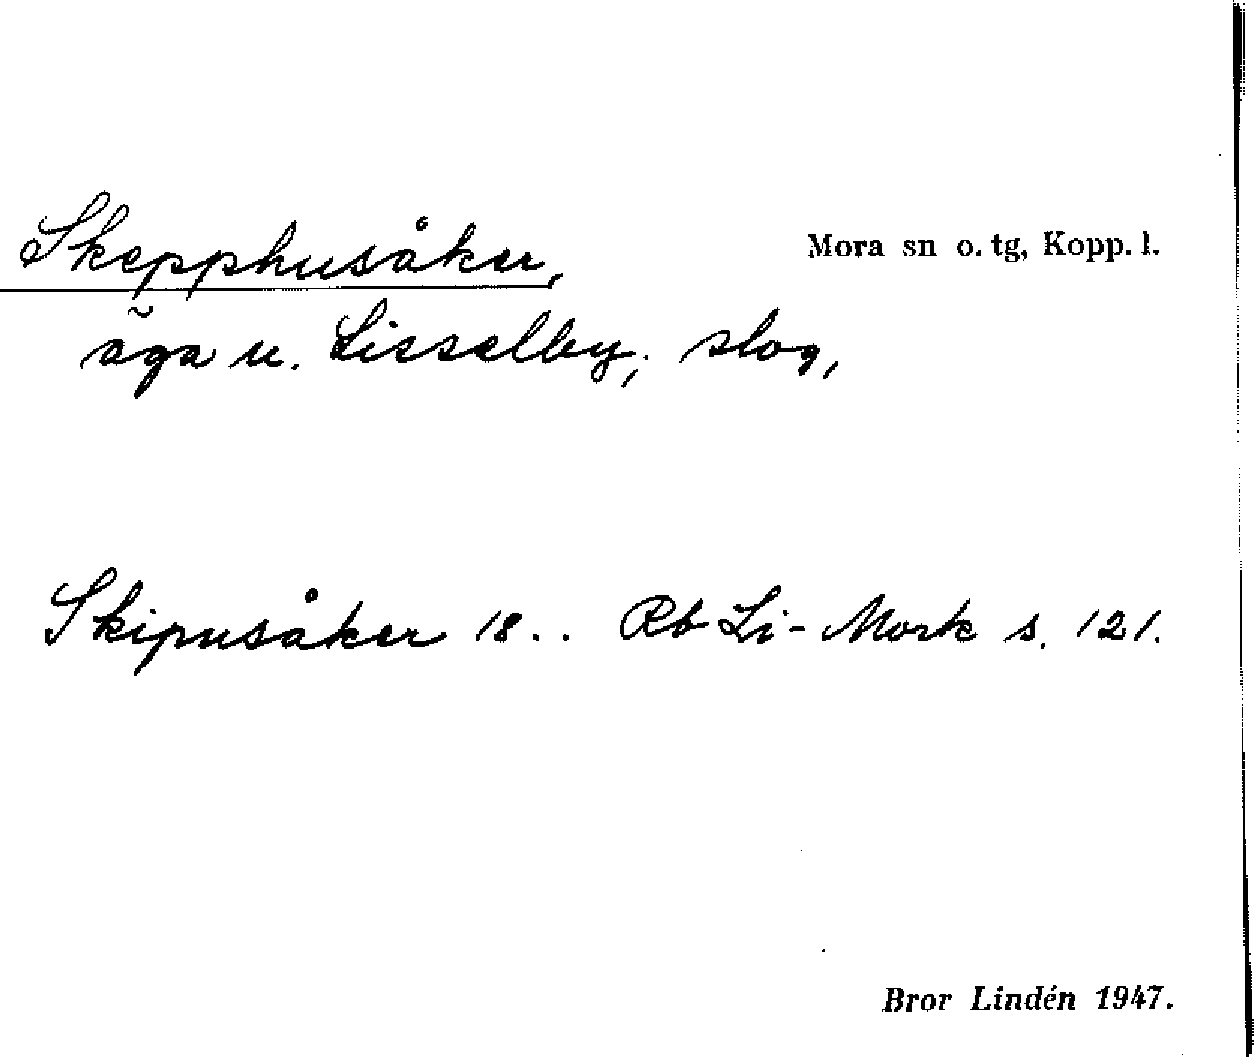 Skepphusåker,
Mora sn o. tg, Kopp. l.
äga u. Lisselby; slog,
Skipusåker 18.. Rb Li-Mork s. 121.
Bror Lindén 1947.